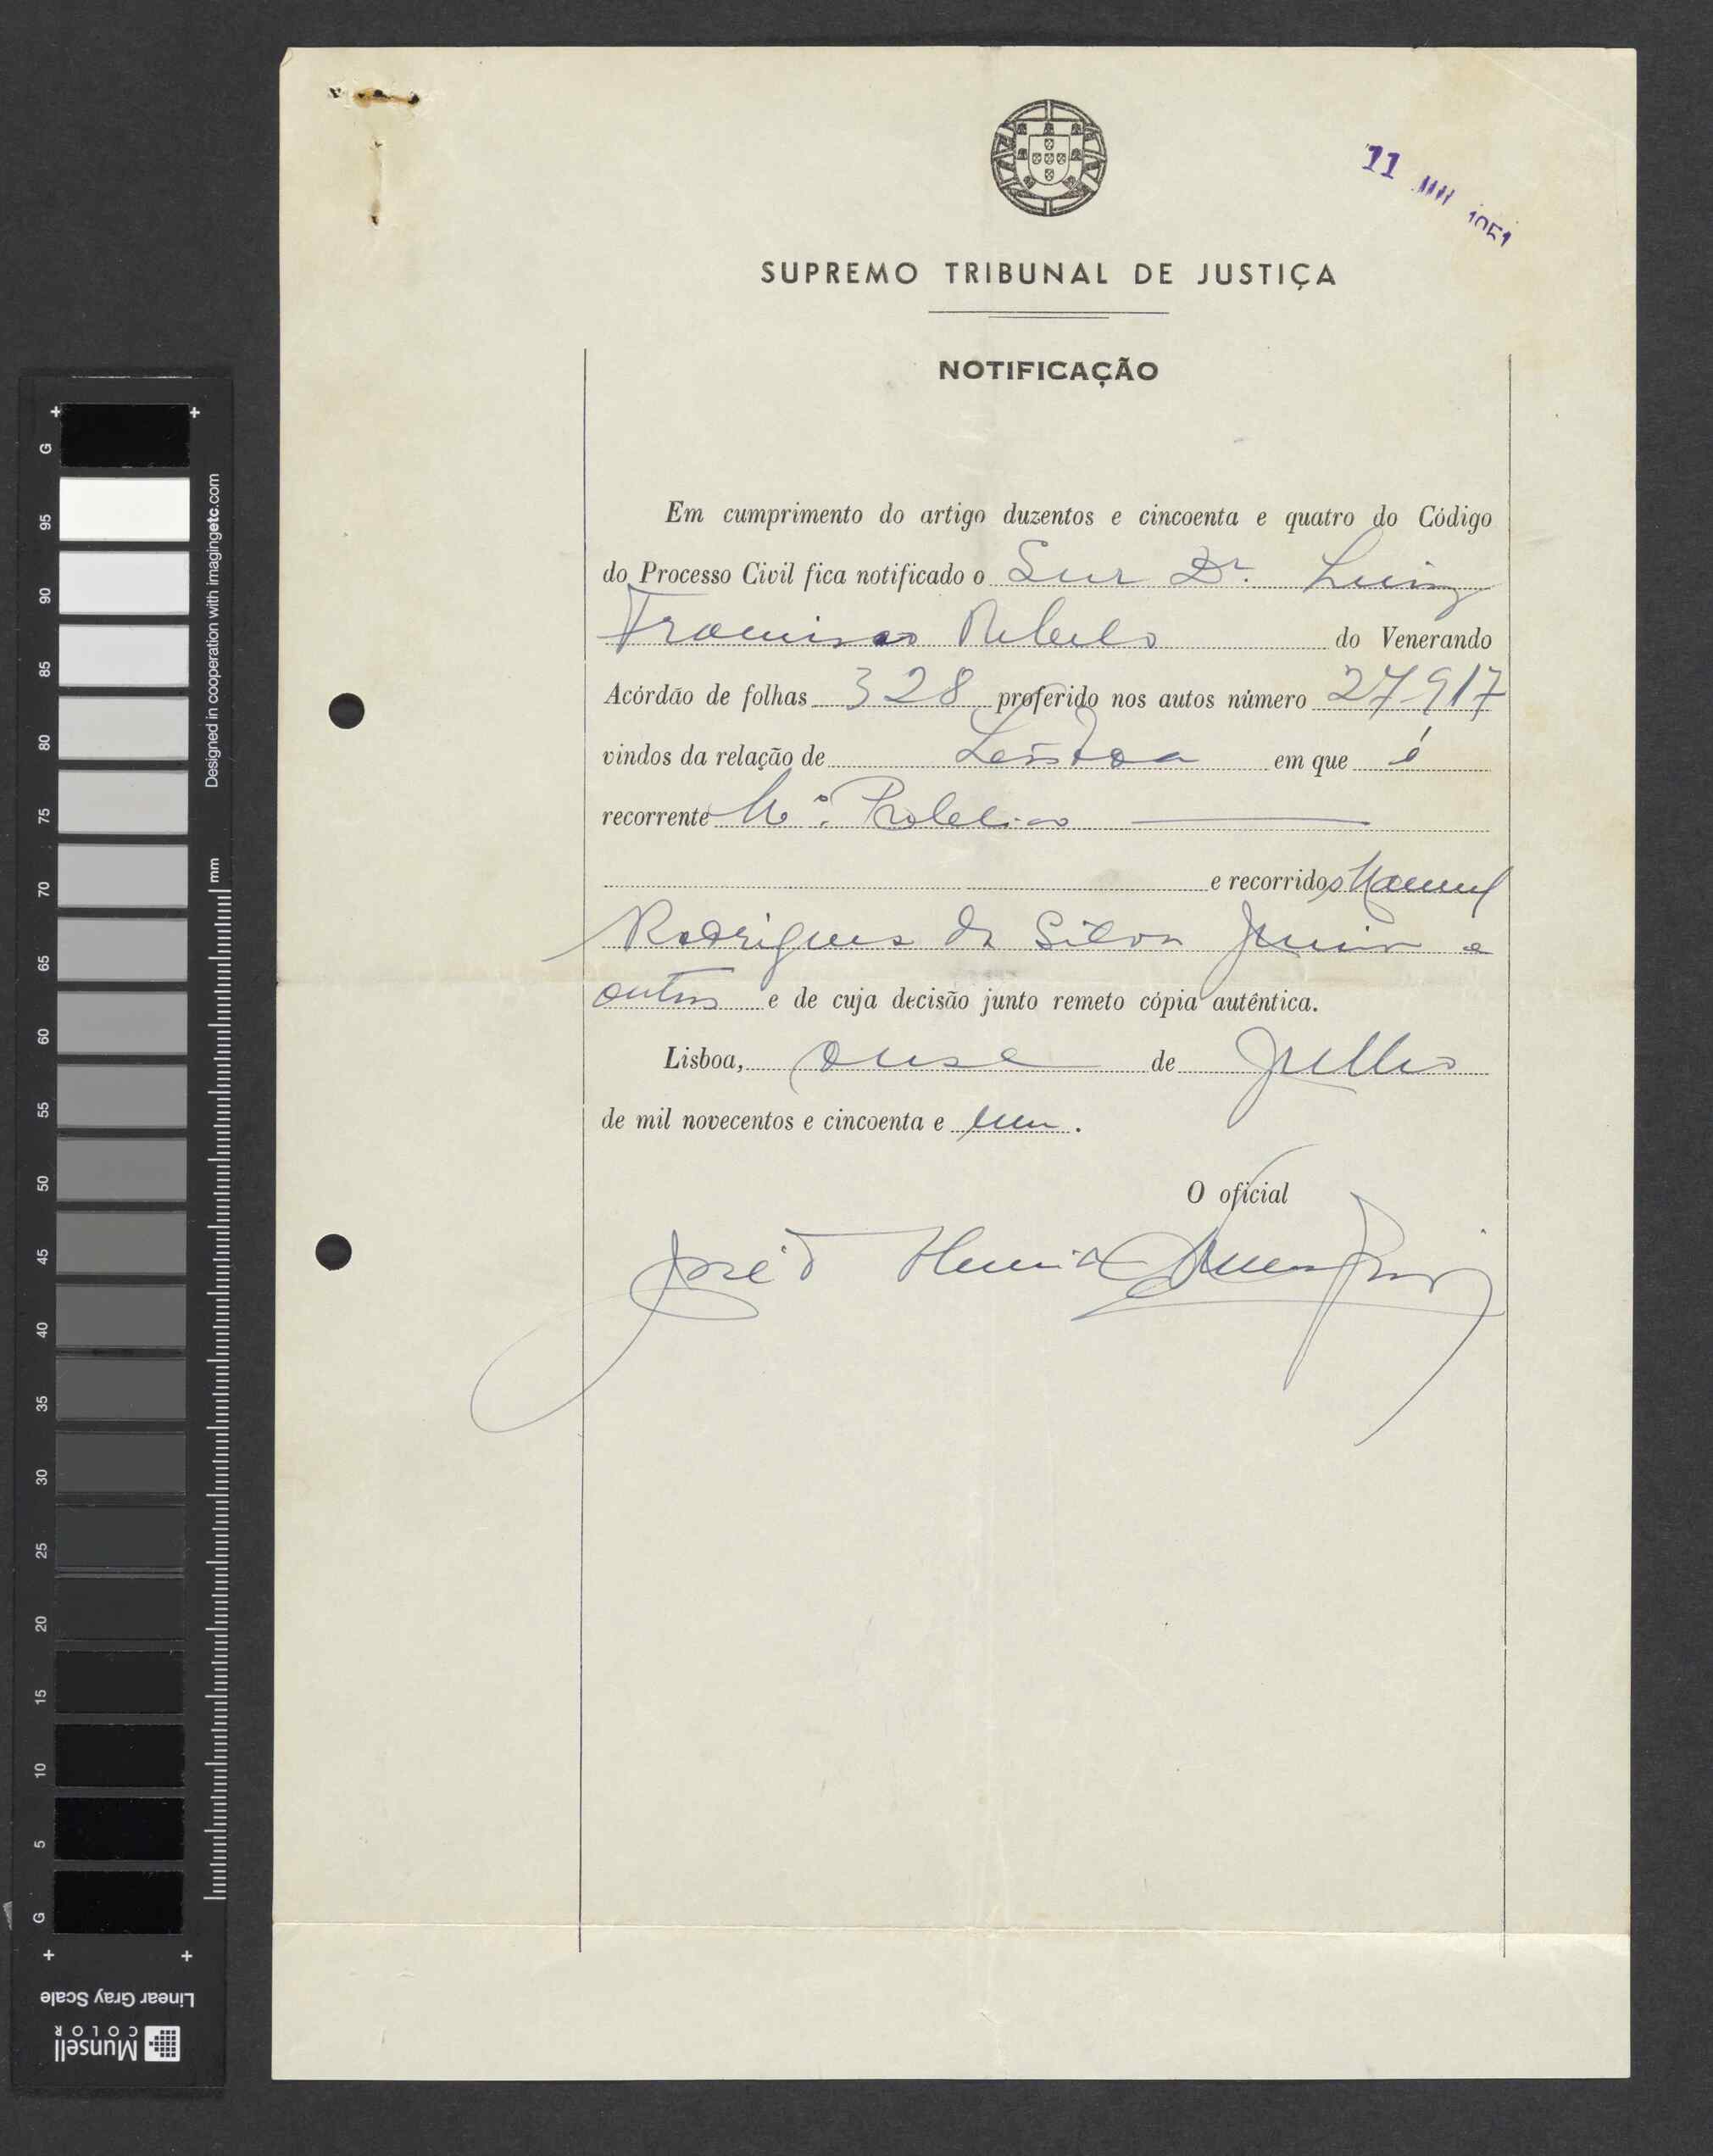 11 JUL 1951
SUPREMO TRIBUNAL DE JUSTIÇA
NOTIFICAÇÃO
Em cumprimento do artigo duzentos e cincoenta e quatro do Código
do Processo Civil fica notificado o Snr Dr. Luiz
Francisco Rebelo do Venerando
Acórdão de folhas 328 proferido nos autos número 27917
vindos da relação de Lisboa em que é
recorrente Mº. Publico
e recorridos Manuel
Rodrigues da Silva Junior e
outros e de cuja decisão junto remeto cópia autêntica.
Lisboa, onse de Julho
de mil novecentos e cincoenta e um.
O oficial
José
G 95 90 85 80 75 70 65 60 55 50 45 40 35 30 25 20 15 10 5 G
mm
Designed in cooperation with imagingetc.com
Linear Gray Scale
Munsell
COLOR